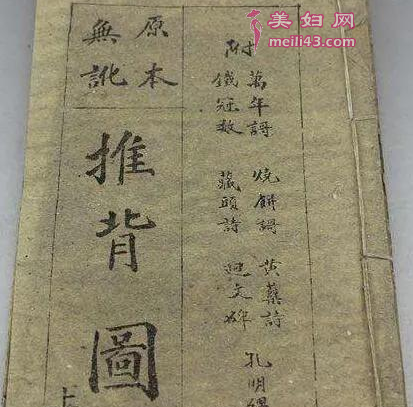 美妇网
meili43.com
附
萬年謌 燒餅謌 黃蘗詩 孔明
鐵冠數 藏頭詩 迴文碑
原本
無訛
推背圖
上